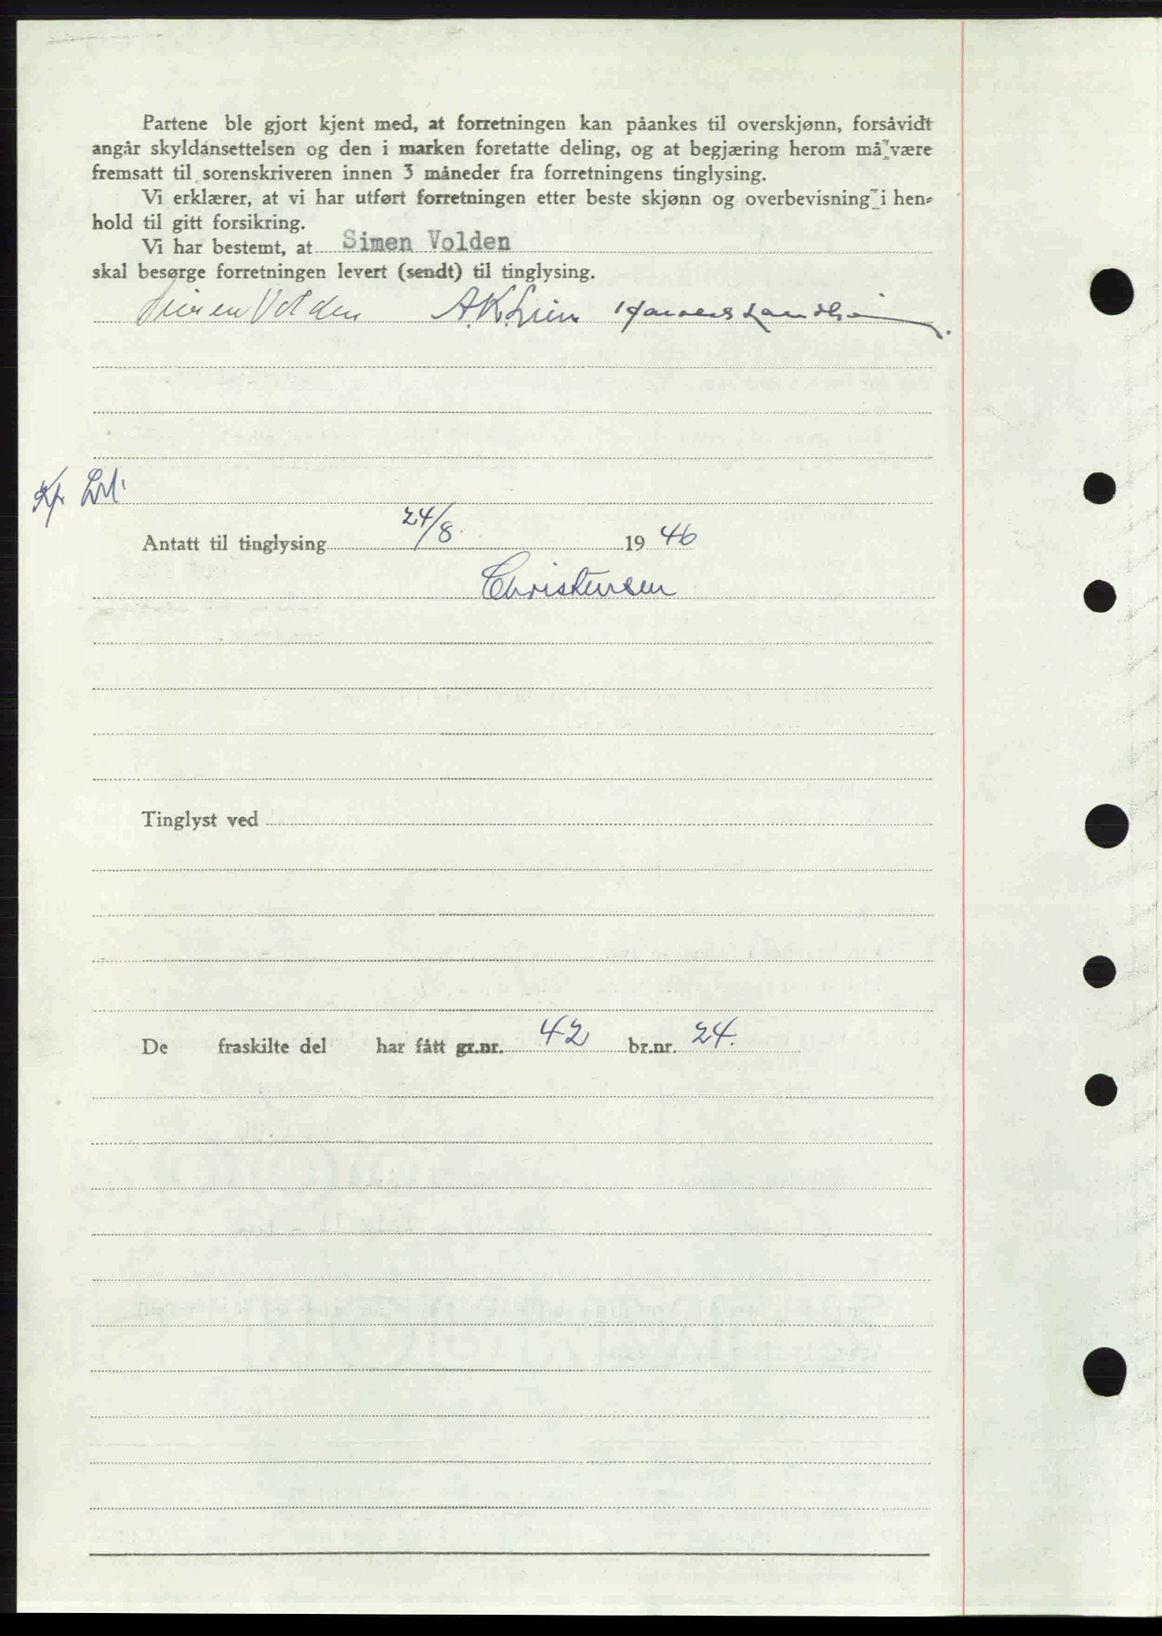 Partene ble gjort kjent med, at forretningen kan påankes til overskjønn, forsåvidt
angår skyldansettelsen og den i marken foretatte deling, og at begjæring herom må være
fremsatt til sorenskriveren innen 3 måneder fra forretningens tinglysing.
Vi erklærer, at vi har utført forretningen etter beste skjønn og overbevisning i hen-
hold til gitt forsikring.
Vi har bestemt, at Simen Volden
skal besørge forretningen levert (sendt) til tinglysing.
Simen Volden A.K. Lien
Antatt til tinglysing 24/8 1946
Christensen
Tinglyst ved
De fraskilte del har fått gr.nr. 42 br.nr. 24.